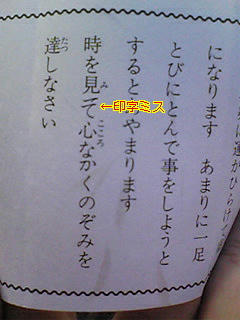 になります　あまりに一足
とびにとんで事をしようと
するとあやまります
時を見て心なかくのぞみを
み
こころ
←印字ミス
達しなさい
たつ